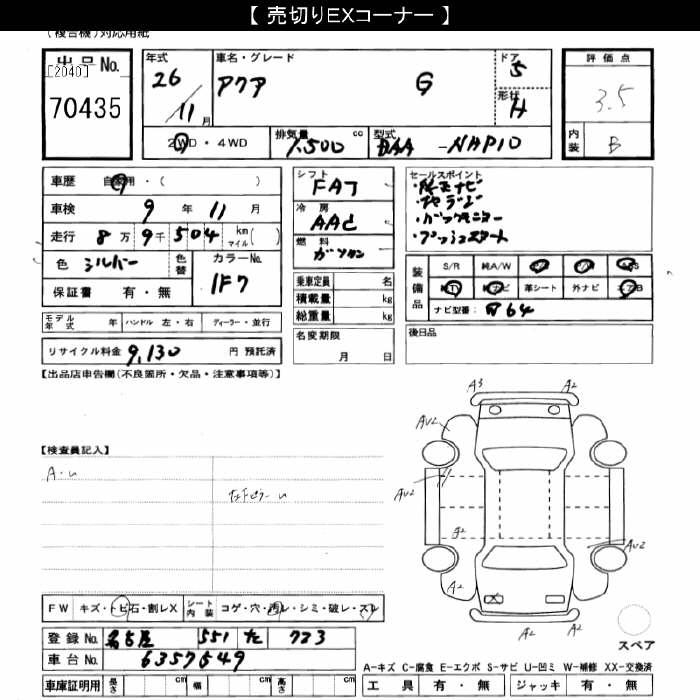 【 売切りEXコーナー 】
(複合機)対応用紙
出品No.
[2040]
70435
年式
26
11月
車名・グレード
アクア G
ドア
5
形状
H
2WD・4WD
排気量 1,500 cc
型式 DAA-NHP10
評価点
3.5
内装
B
車歴 自家用・( )
車検 9年 11月
走行 8万 9千 504 km マイル( )
色 シルバー 色替 カラーNo. 1F7
保証書 有・無
モデル年式 年 ハンドル 左・右 ディーラー・並行
リサイクル料金 9,130 円 預託済
シフト
FAT
冷房
AAC
燃料
ガソリン
乗車定員 名
積載量 kg
総重量 kg
名変期限
月 日
セールスポイント
・純正ナビ
・バックモニター
・プッシュスタート
装備品
S/R 純A/W
純ナビ 革シート 外ナビ エアB
ナビ型番: N64
後日品
【出品店申告欄(不良箇所・欠品・注意事項等)】
【検査員記入】
A3 A2
AU2
AU2
A2
AU2
A2 A2
A2 A2
FW キズ・トビ石・割レX シート内装 コゲ・穴・汚レ・シミ・破レ・スレ
登録No. 名古屋 551 た 723
車台No. 6357649
車庫証明用 長さ cm 幅 cm 高さ cm
スペア
A-キズ C-腐食 E-エクボ S-サビ U-凹ミ W-補修 XX-交換済
工具 有・無 ジャッキ 有・無